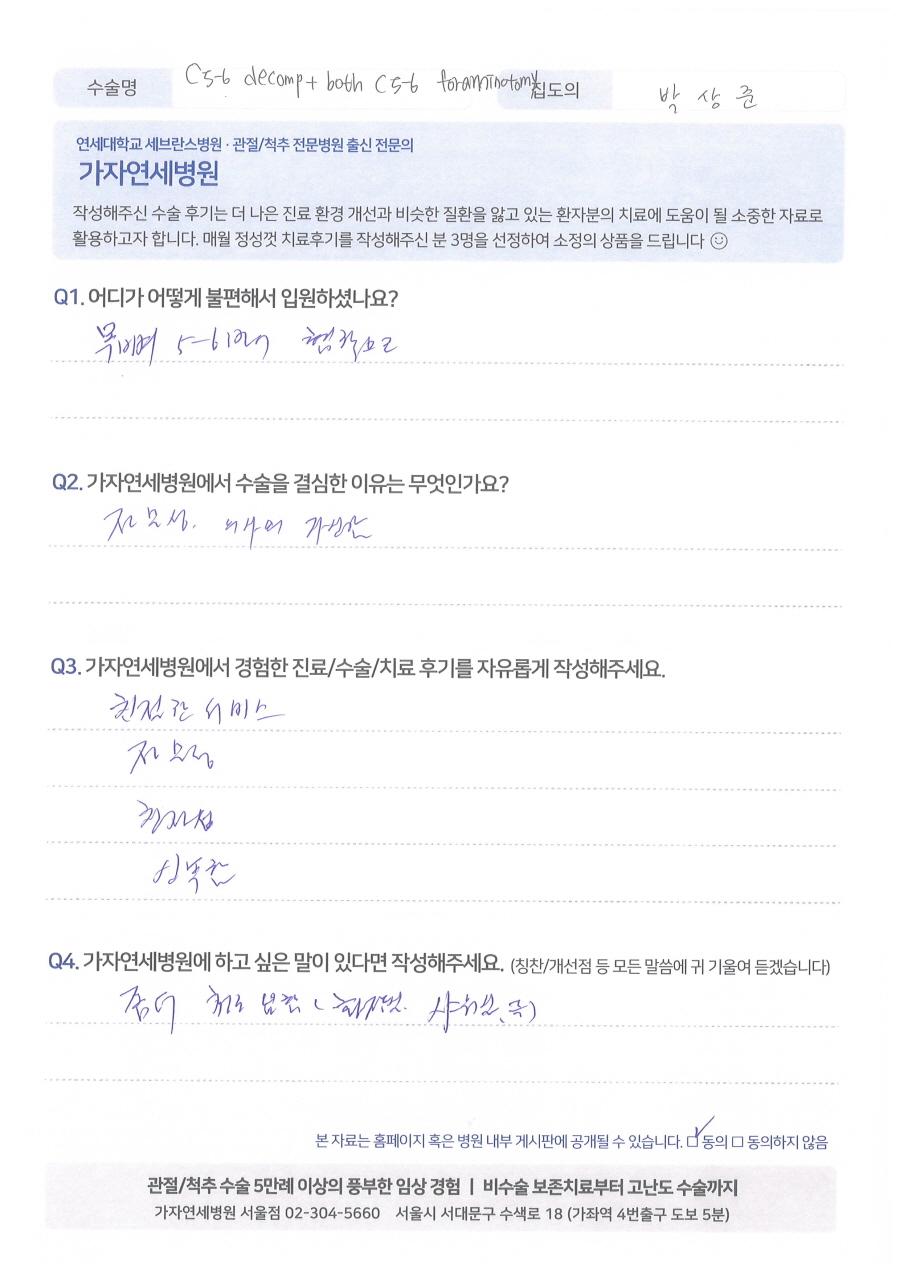 수술명 C5-6 decomp + both C5-6 foraminotomy 집도의 박상준
연세대학교 세브란스병원 · 관절/척추 전문병원 출신 전문의
가자연세병원
작성해주신 수술 후기는 더 나은 진료 환경 개선과 비슷한 질환을 앓고 있는 환자분의 치료에 도움이 될 소중한 자료로
활용하고자 합니다. 매월 정성껏 치료후기를 작성해주신 분 3명을 선정하여 소정의 상품을 드립니다 ☺
Q1. 어디가 어떻게 불편해서 입원하셨나요?
목디스크 5-6번 협착으로
Q2. 가자연세병원에서 수술을 결심한 이유는 무엇인가요?
전문성. 의사의
Q3. 가자연세병원에서 경험한 진료/수술/치료 후기를 자유롭게 작성해주세요.
친절한 서비스
전문성
Q4. 가자연세병원에 하고 싶은 말이 있다면 작성해주세요. (칭찬/개선점 등 모든 말씀에 귀 기울여 듣겠습니다)
좀더 청소 (화장실. 샤워실, 등)
본 자료는 홈페이지 혹은 병원 내부 게시판에 공개될 수 있습니다. ☑ 동의 □ 동의하지 않음
관절/척추 수술 5만례 이상의 풍부한 임상 경험 | 비수술 보존치료부터 고난도 수술까지
가자연세병원 서울점 02-304-5660 서울시 서대문구 수색로 18 (가좌역 4번출구 도보 5분)